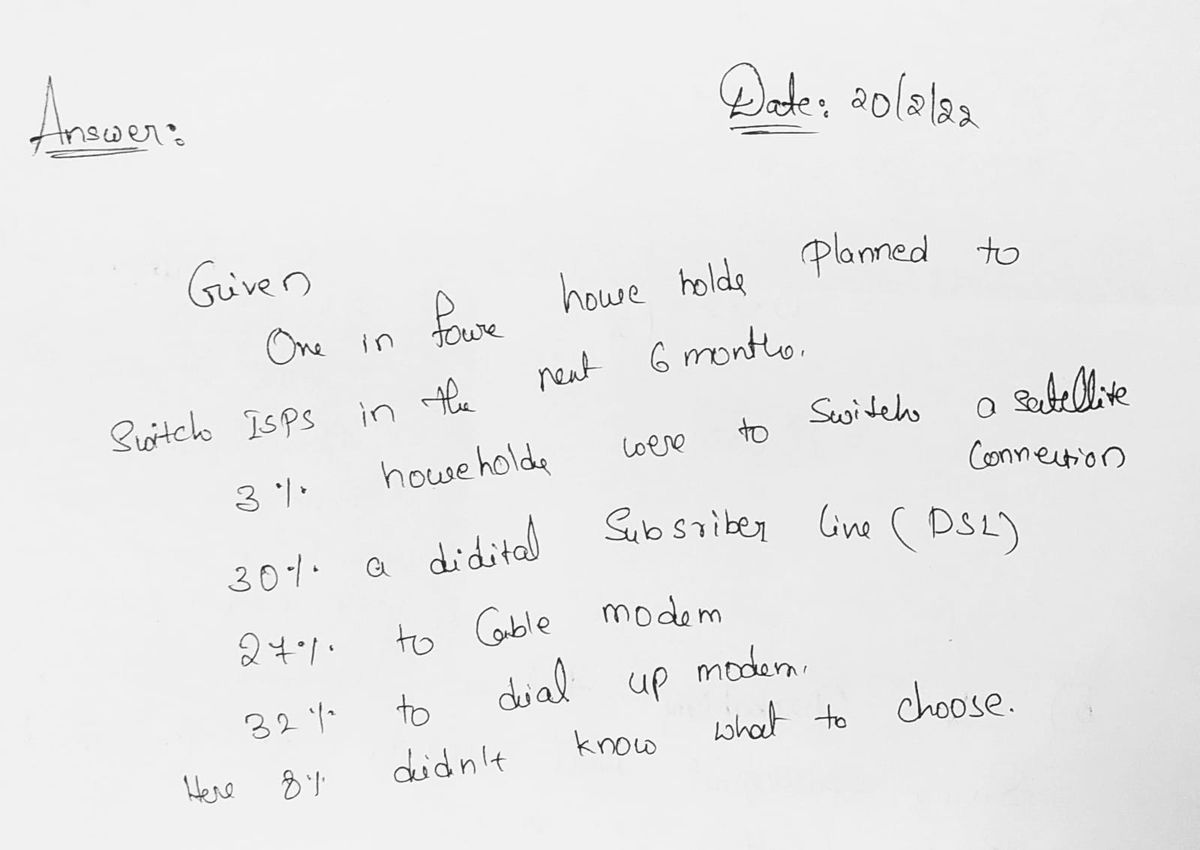 Answer:
Date: 20/2/22
Given
One in foure house holds planned to
Switch ISPS in the next 6 months.
3% households were to Switch a satellite
Connection
30% a didital Subsriber line (DSL)
27% to Cable modem
32% to dial up modem.
Here 8% didn't know what to choose.